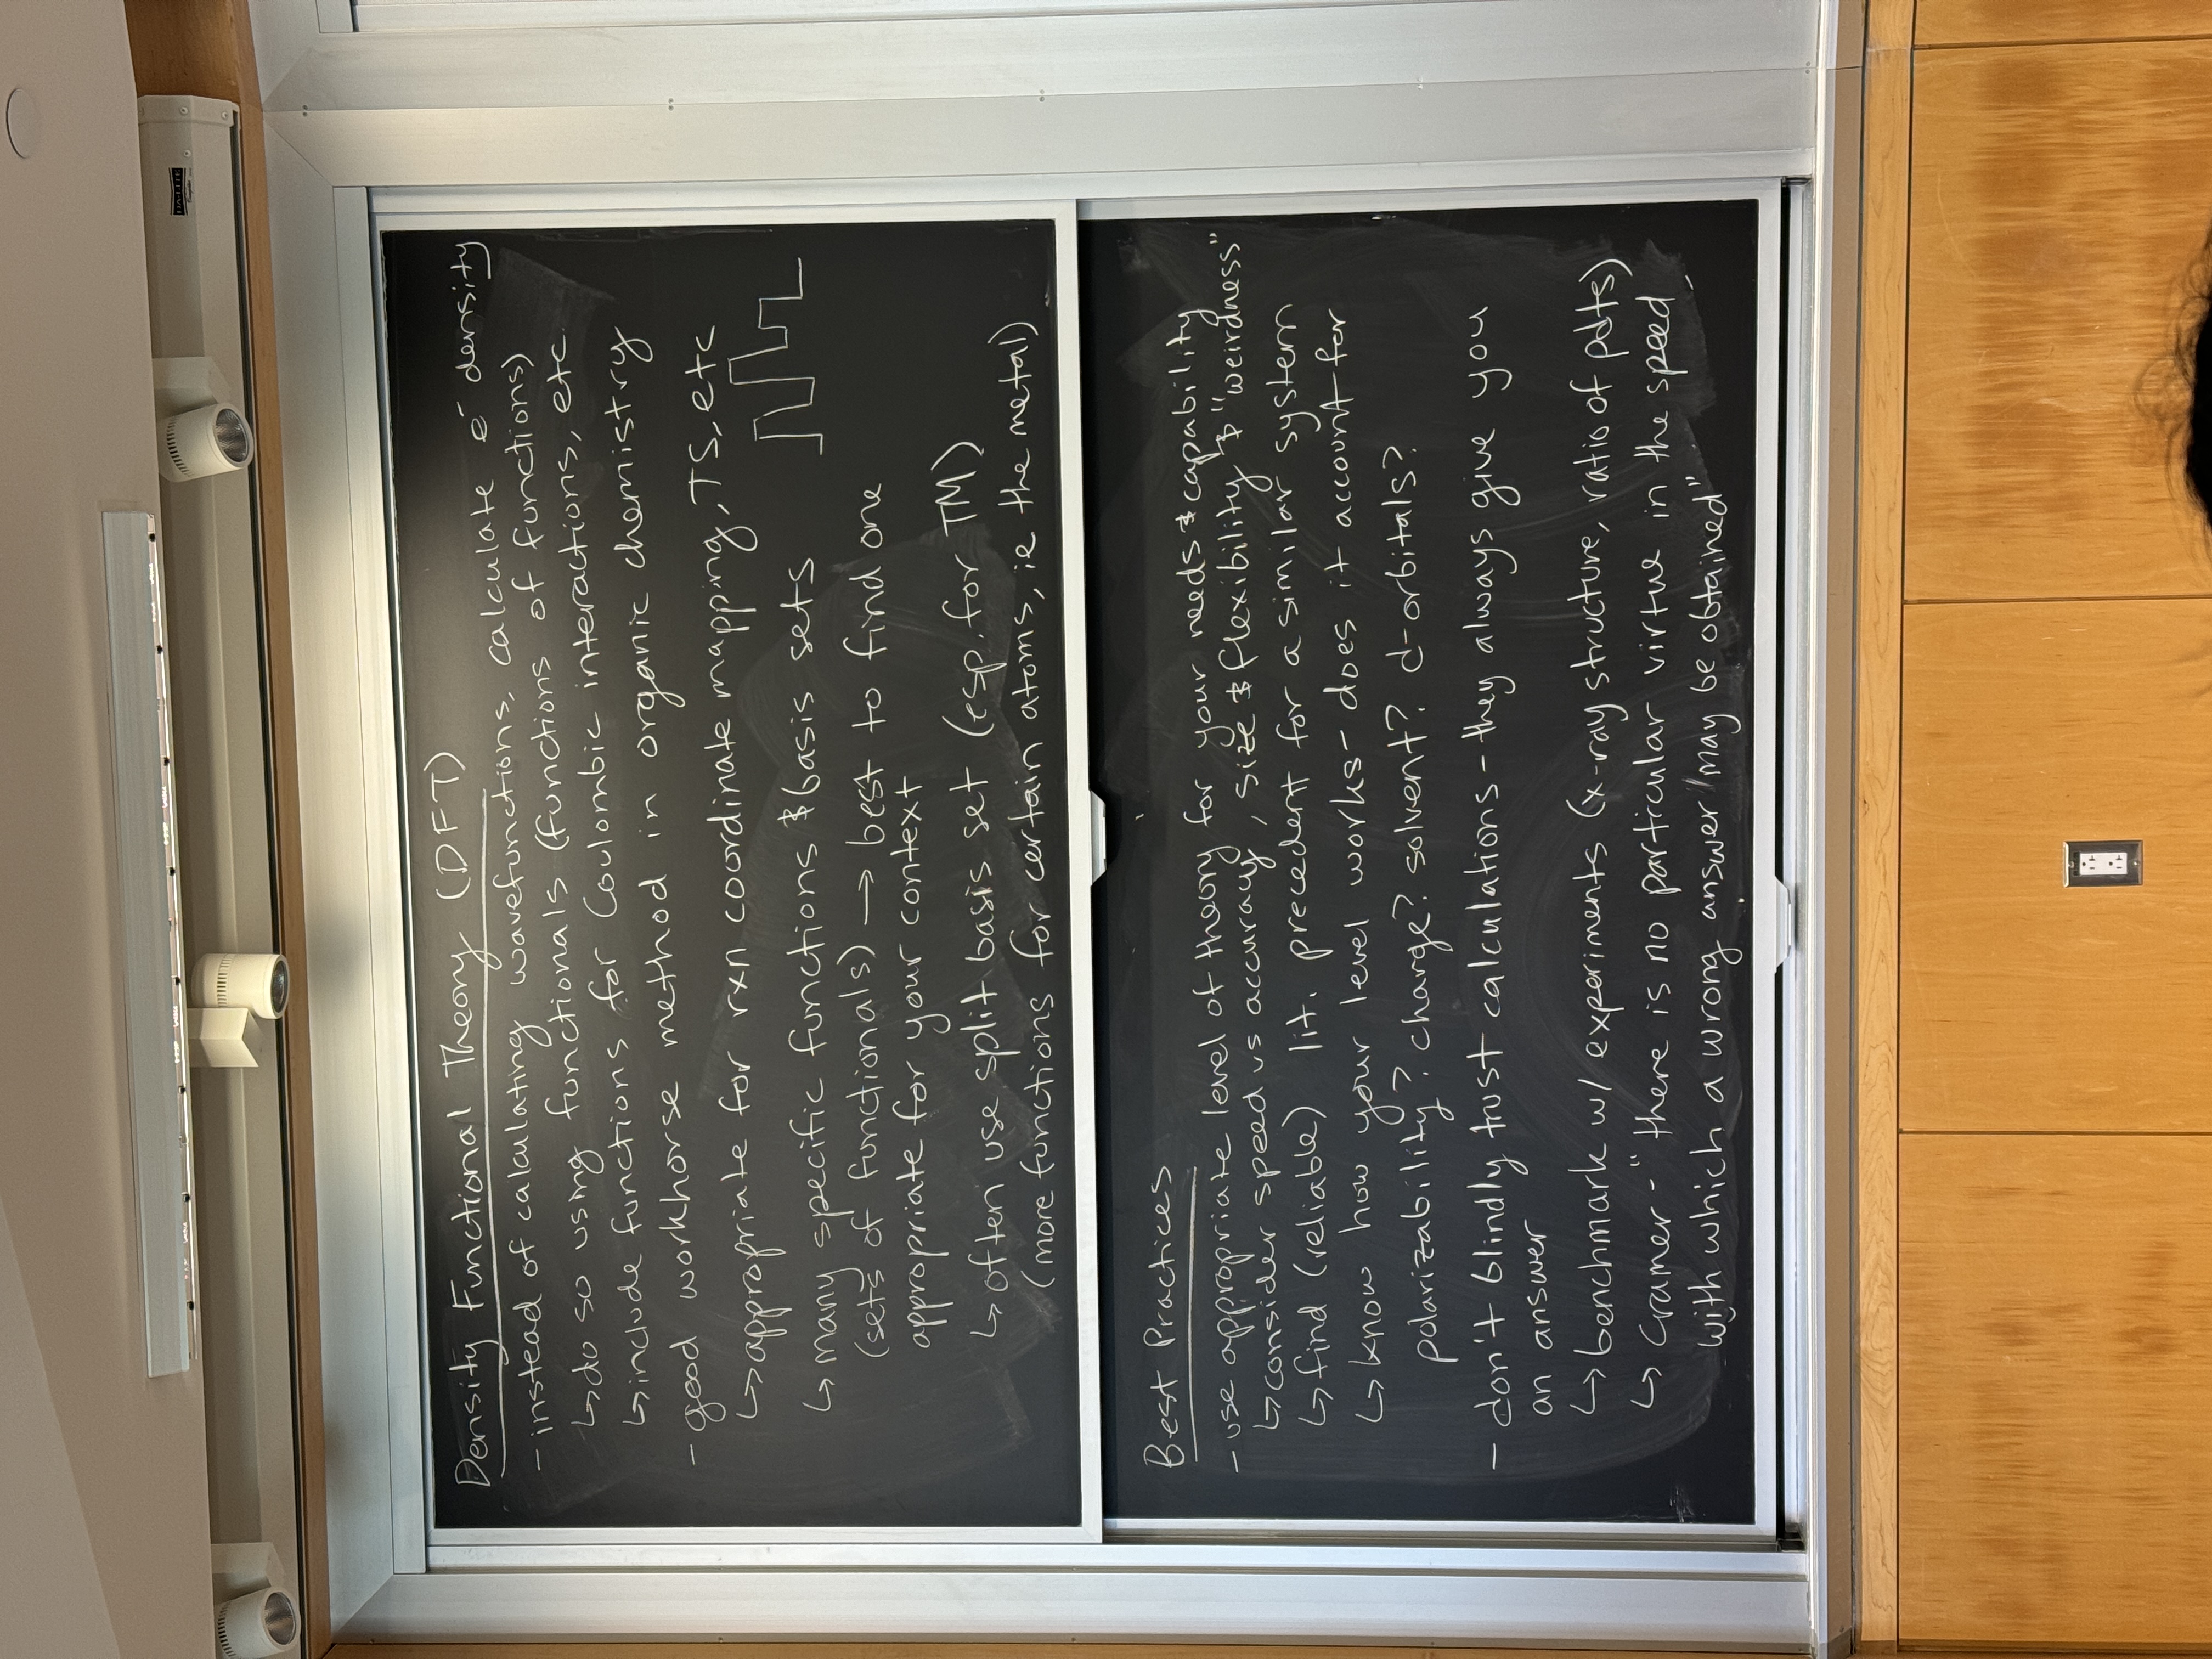 DA-LITE
Density Functional Theory (DFT)
- instead of calculating wavefunctions, calculate e⁻ density
↳ do so using functionals (functions of functions)
↳ include functions for Coulombic interactions, etc.
- good workhorse method in organic chemistry
↳ appropriate for rxn coordinate mapping, TS, etc
↳ many specific functions & basis sets
(sets of functionals) → best to find one
appropriate for your context
↳ often use split basis set (esp. for TM)
(more functions for certain atoms, ie the metal)
Best Practices
- use appropriate level of theory for your needs & capability
↳ consider speed vs accuracy, size & flexibility & "weirdness"
↳ find (reliable) lit. precedent for a similar system
↳ know how your level works - does it account for
polarizability? charge? solvent? d-orbitals?
- don't blindly trust calculations - they always give you
an answer
↳ benchmark w/ experiments (x-ray structure, ratio of pdts)
↳ Cramer - "there is no particular virtue in the speed
with which a wrong answer may be obtained"